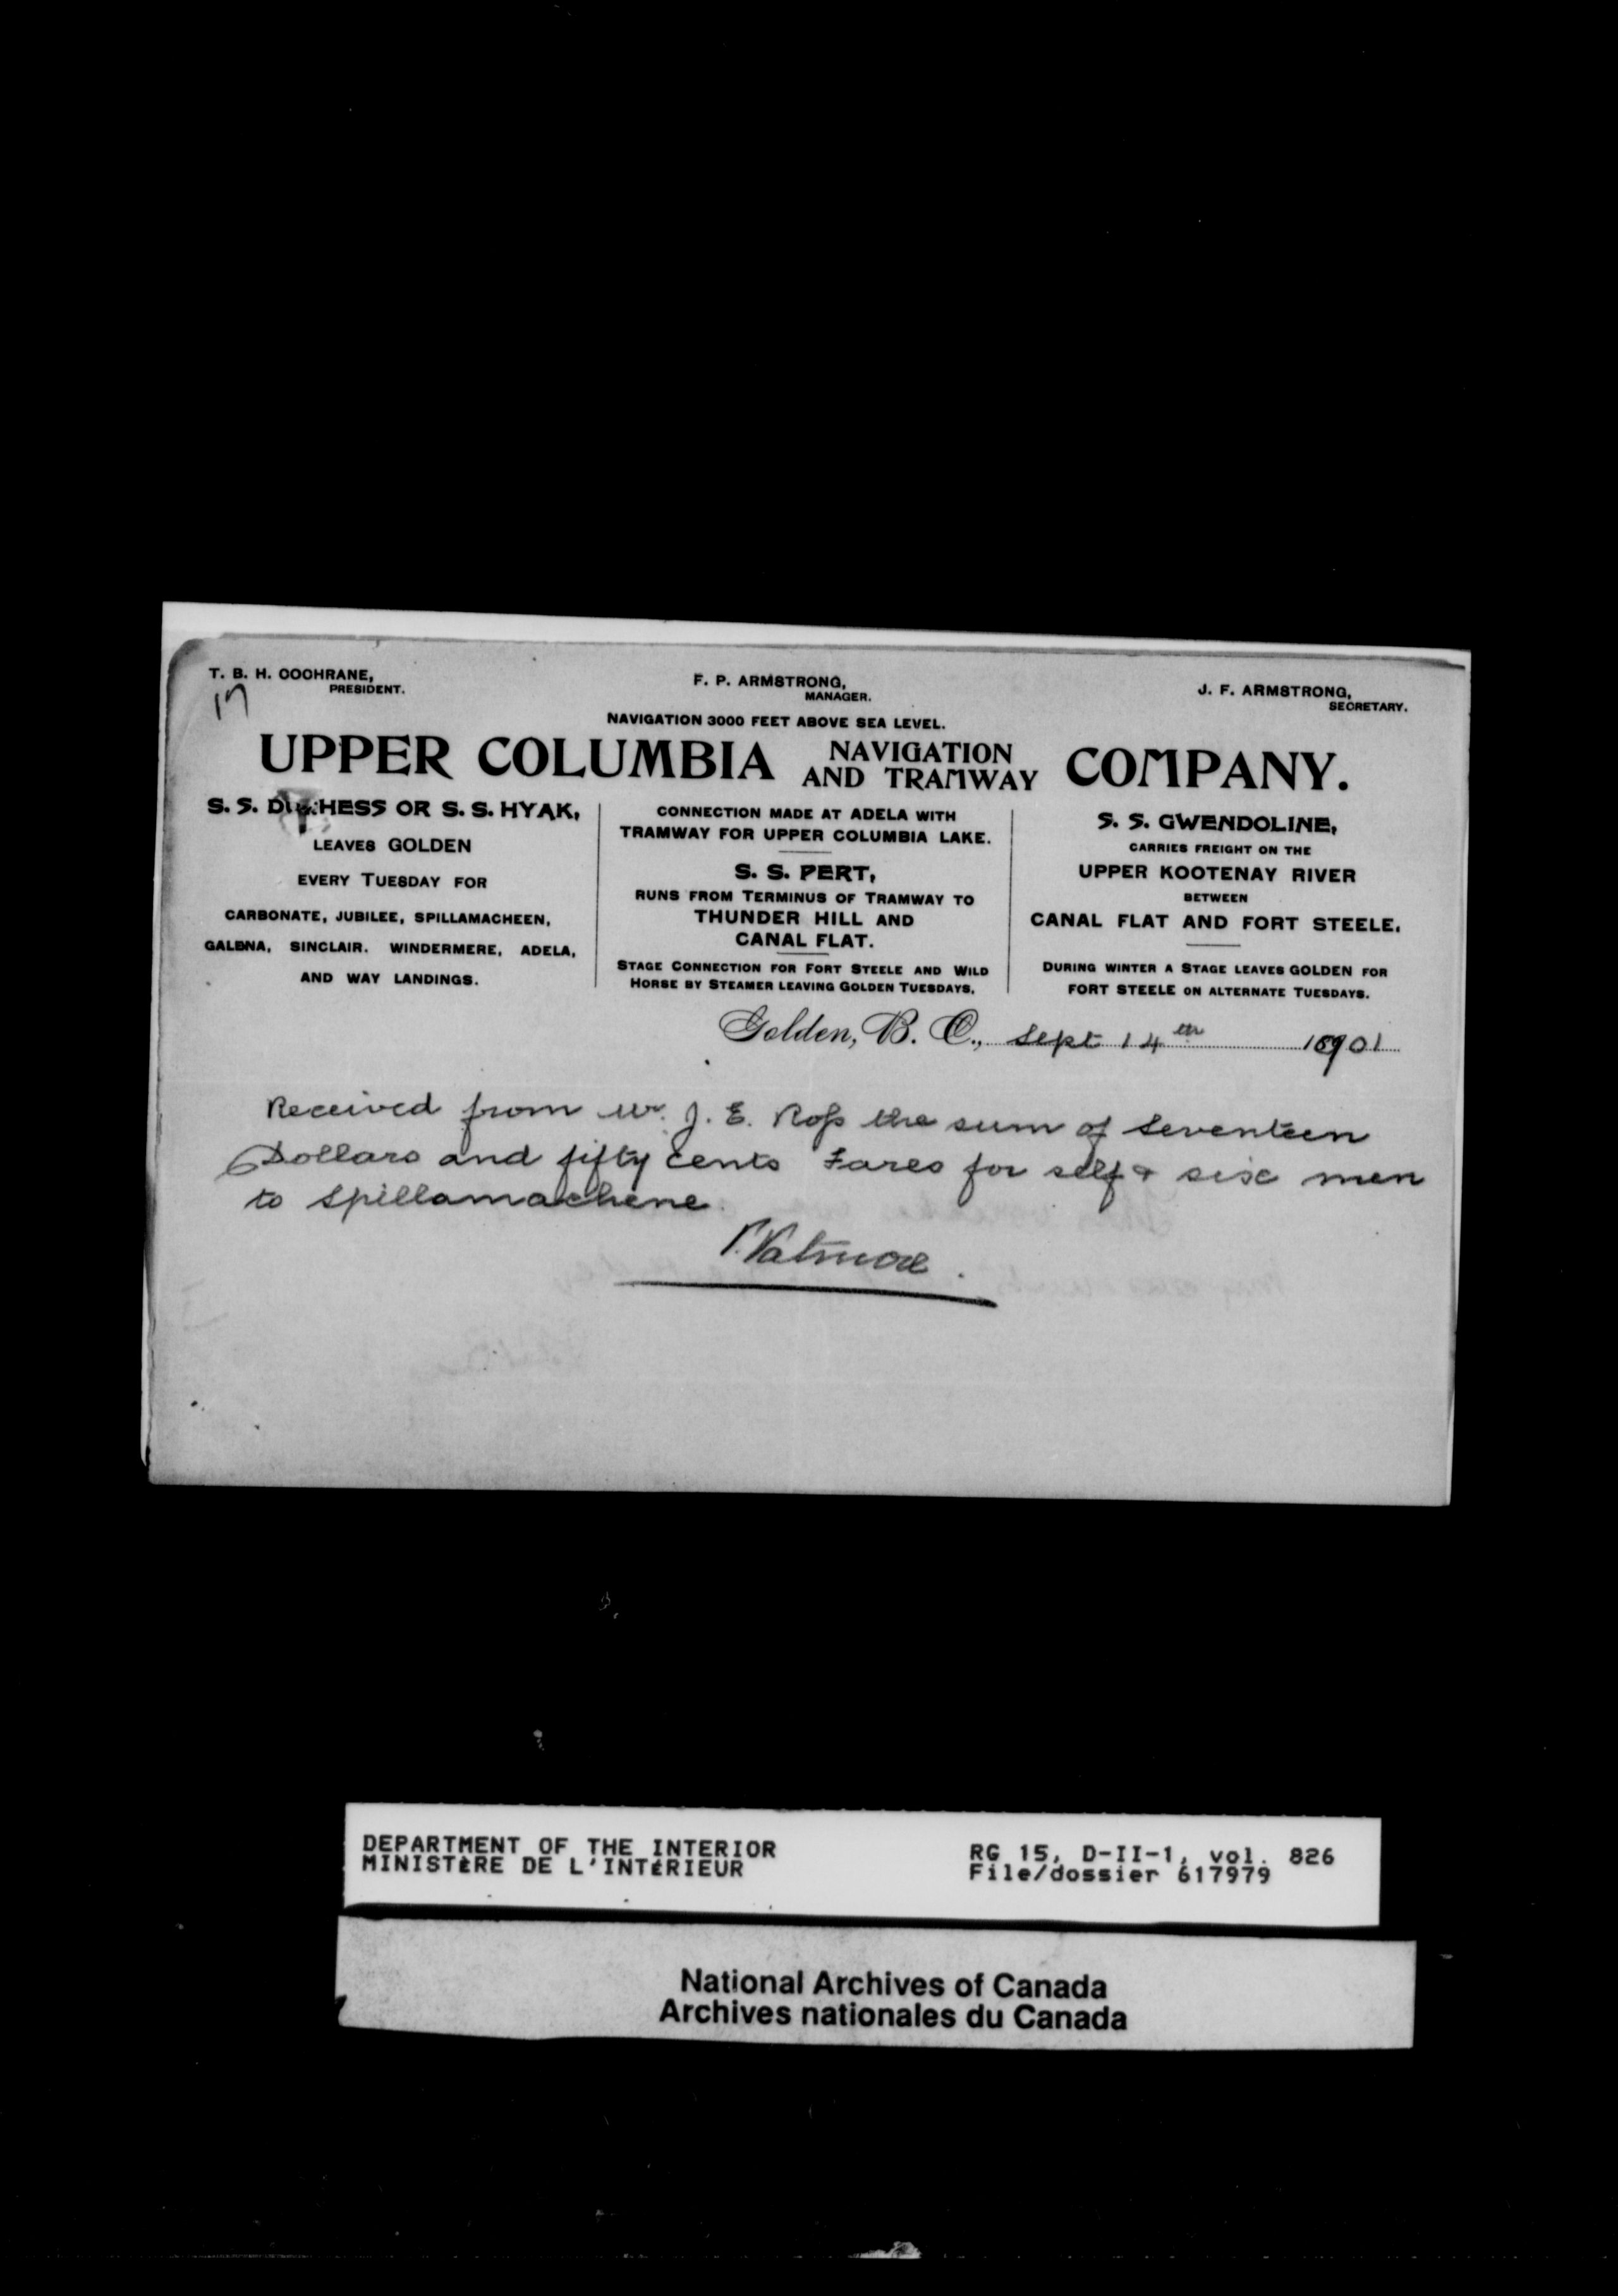 T. B. H. COCHRANE,
PRESIDENT.
17
F. P. ARMSTRONG,
MANAGER.
J. F. ARMSTRONG,
SECRETARY.
NAVIGATION 3000 FEET ABOVE SEA LEVEL.
UPPER COLUMBIA NAVIGATION AND TRAMWAY COMPANY.
S. S. DUCHESS OR S. S. HYAK,
LEAVES GOLDEN
EVERY TUESDAY FOR
CARBONATE, JUBILEE, SPILLAMACHEEN,
GALENA, SINCLAIR. WINDERMERE, ADELA,
AND WAY LANDINGS.
CONNECTION MADE AT ADELA WITH
TRAMWAY FOR UPPER COLUMBIA LAKE.
S. S. PERT,
RUNS FROM TERMINUS OF TRAMWAY TO
THUNDER HILL AND
CANAL FLAT.
STAGE CONNECTION FOR FORT STEELE AND WILD
HORSE BY STEAMER LEAVING GOLDEN TUESDAYS.
S. S. GWENDOLINE,
CARRIES FREIGHT ON THE
UPPER KOOTENAY RIVER
BETWEEN
CANAL FLAT AND FORT STEELE.
DURING WINTER A STAGE LEAVES GOLDEN FOR
FORT STEELE ON ALTERNATE TUESDAYS.
Golden, B. C., Sept 14th 1901
Received from Mr. J. E. Ross the sum of Seventeen
Dollars and fifty cents Fares for self & six men
to Spillamachene.
DEPARTMENT OF THE INTERIOR
MINISTÈRE DE L'INTÉRIEUR
RG 15, D-II-1, vol. 826
File/dossier 617979
National Archives of Canada
Archives nationales du Canada